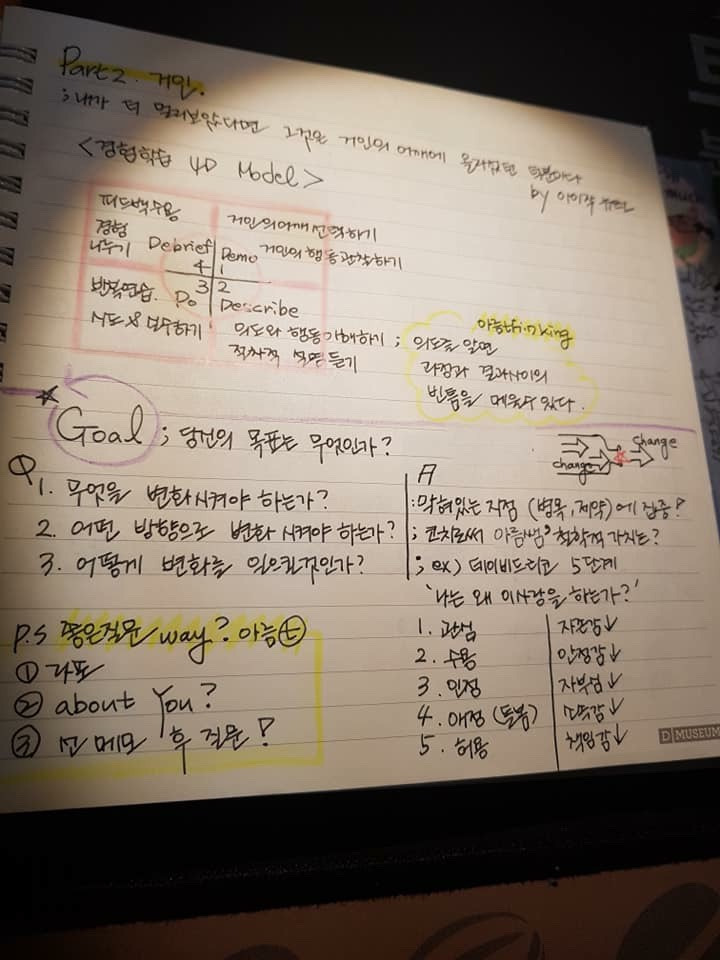 Part 2. 거인.
; 내가 더 멀리보았다면 그것은 거인의 어깨에 올라섰던 덕분이다
by 아이작 뉴턴
<경험학습 4D Model>
피드백수용
경험
나누기 Debrief
4
거인의어깨선택하기
Demo 거인의 행동관찰하기
1
3
반복연습. Do
시도&실수하기
2
Describe
의도와 행동이해하기 ;
적차적 설명듣기
아하thinking
의도를 알면
과정과 결과사이의
빈틈을 메울수있다.
Goal ; 당신의 목표는 무엇인가?
change
change
Q
1. 무엇을 변화시켜야 하는가?
2. 어떤 방향으로 변화시켜야하는가?
3. 어떻게 변화를 일으킬것인가?
A
: 막혀있는 지점 (병목, 제약)에 집중!
; 코치로써 아름쌤's 철학적 가치는?
; ex) 데이비드리코 5단계
'나는 왜 이사람을 하는가?'
1. 관심 자존감↓
2. 수용 안정감↓
3. 인정 자부심↓
4. 애정 (돌봄) 소속감↓
5. 허용 책임감↓
P.S 좋은질문 way?
①
② about You?
③ 선 메모 후 질문!
D MUSEUM